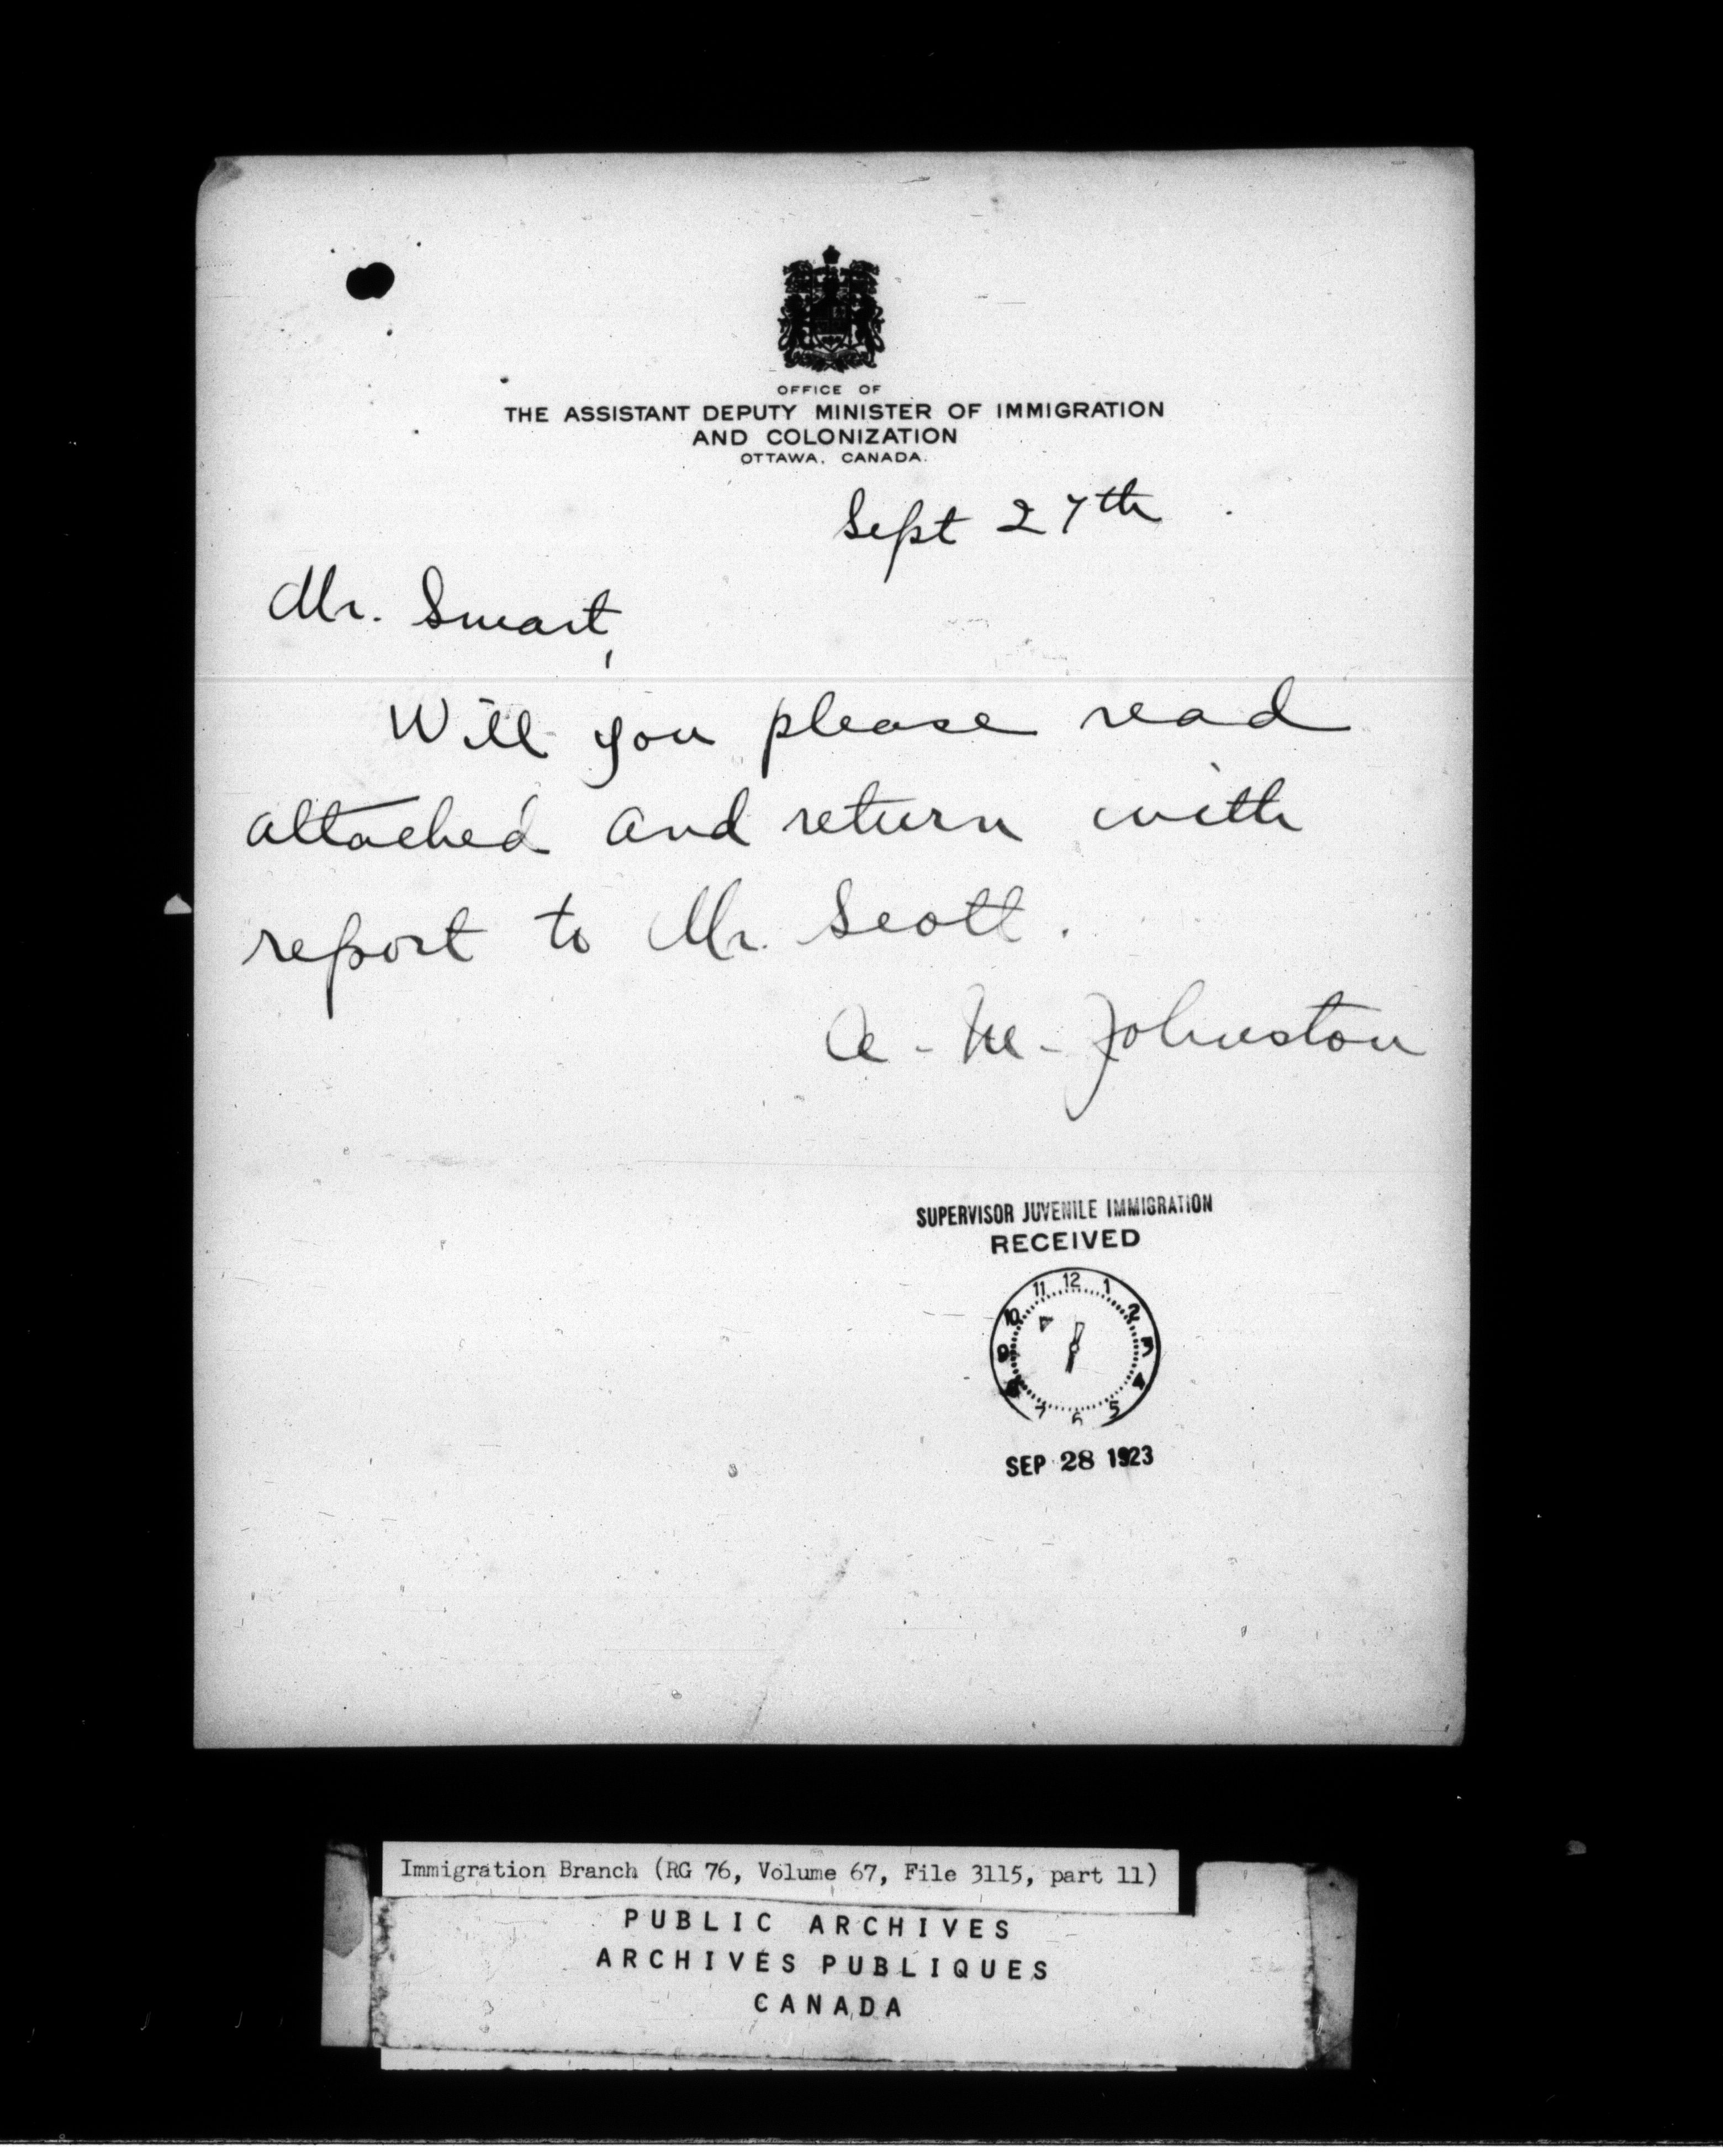 OFFICE OF
THE ASSISTANT DEPUTY MINISTER OF IMMIGRATION
AND COLONIZATION
OTTAWA, CANADA.
Sept 27th
Mr. Smart,
Will you please read
attached and return with
report to Mr. Scott.
A. M. Johnston
SUPERVISOR JUVENILE IMMIGRATION
RECEIVED
11 12 1
10 2
9 3
8 4
7 6 5
SEP 28 1923
Immigration Branch (RG 76, Volume 67, File 3115, part 11)
PUBLIC ARCHIVES
ARCHIVES PUBLIQUES
CANADA